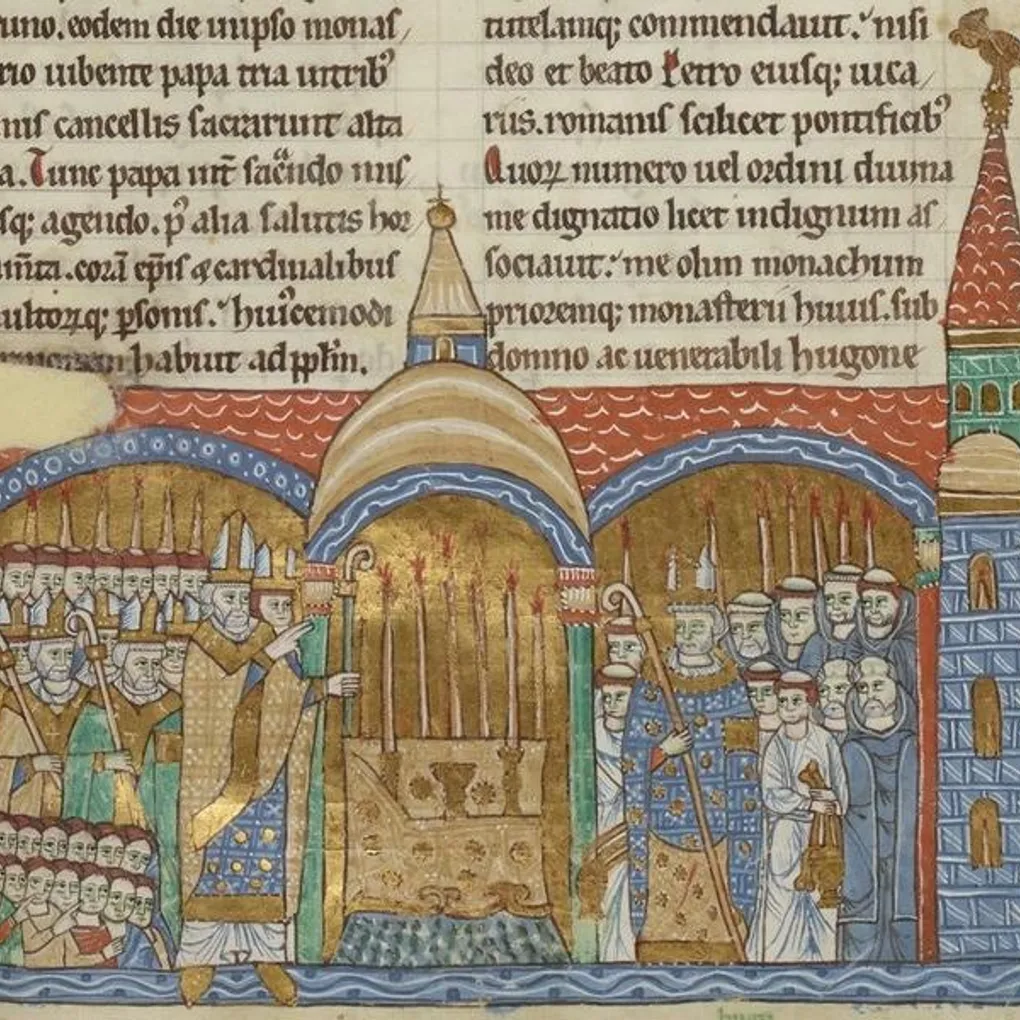 uno. eodem die in ipso monas/
rio iubente papa tria in tribꝰ
mis cancellis sacrarunt alta
a. Tunc papa int̄ sac̄ndo mis/
sq; agendo. p̾ alia salutis hor/
m̄ta. corā ep̄is & cardinalibus
ultorꝝq; ꝑsonis. huiꝰcemodi
habuit ad pplm̄.
tutelamq; commendauit. nisi
deo et beato Petro eiusq; uica/
riis. romanis scilicet pontificibꝰ
Quorꝝ numero uel ordini diuina
me dignatio licet indignum as/
sociauit. me olim monachum
prioremq; monasterii huius. sub
domno ac uenerabili hugone